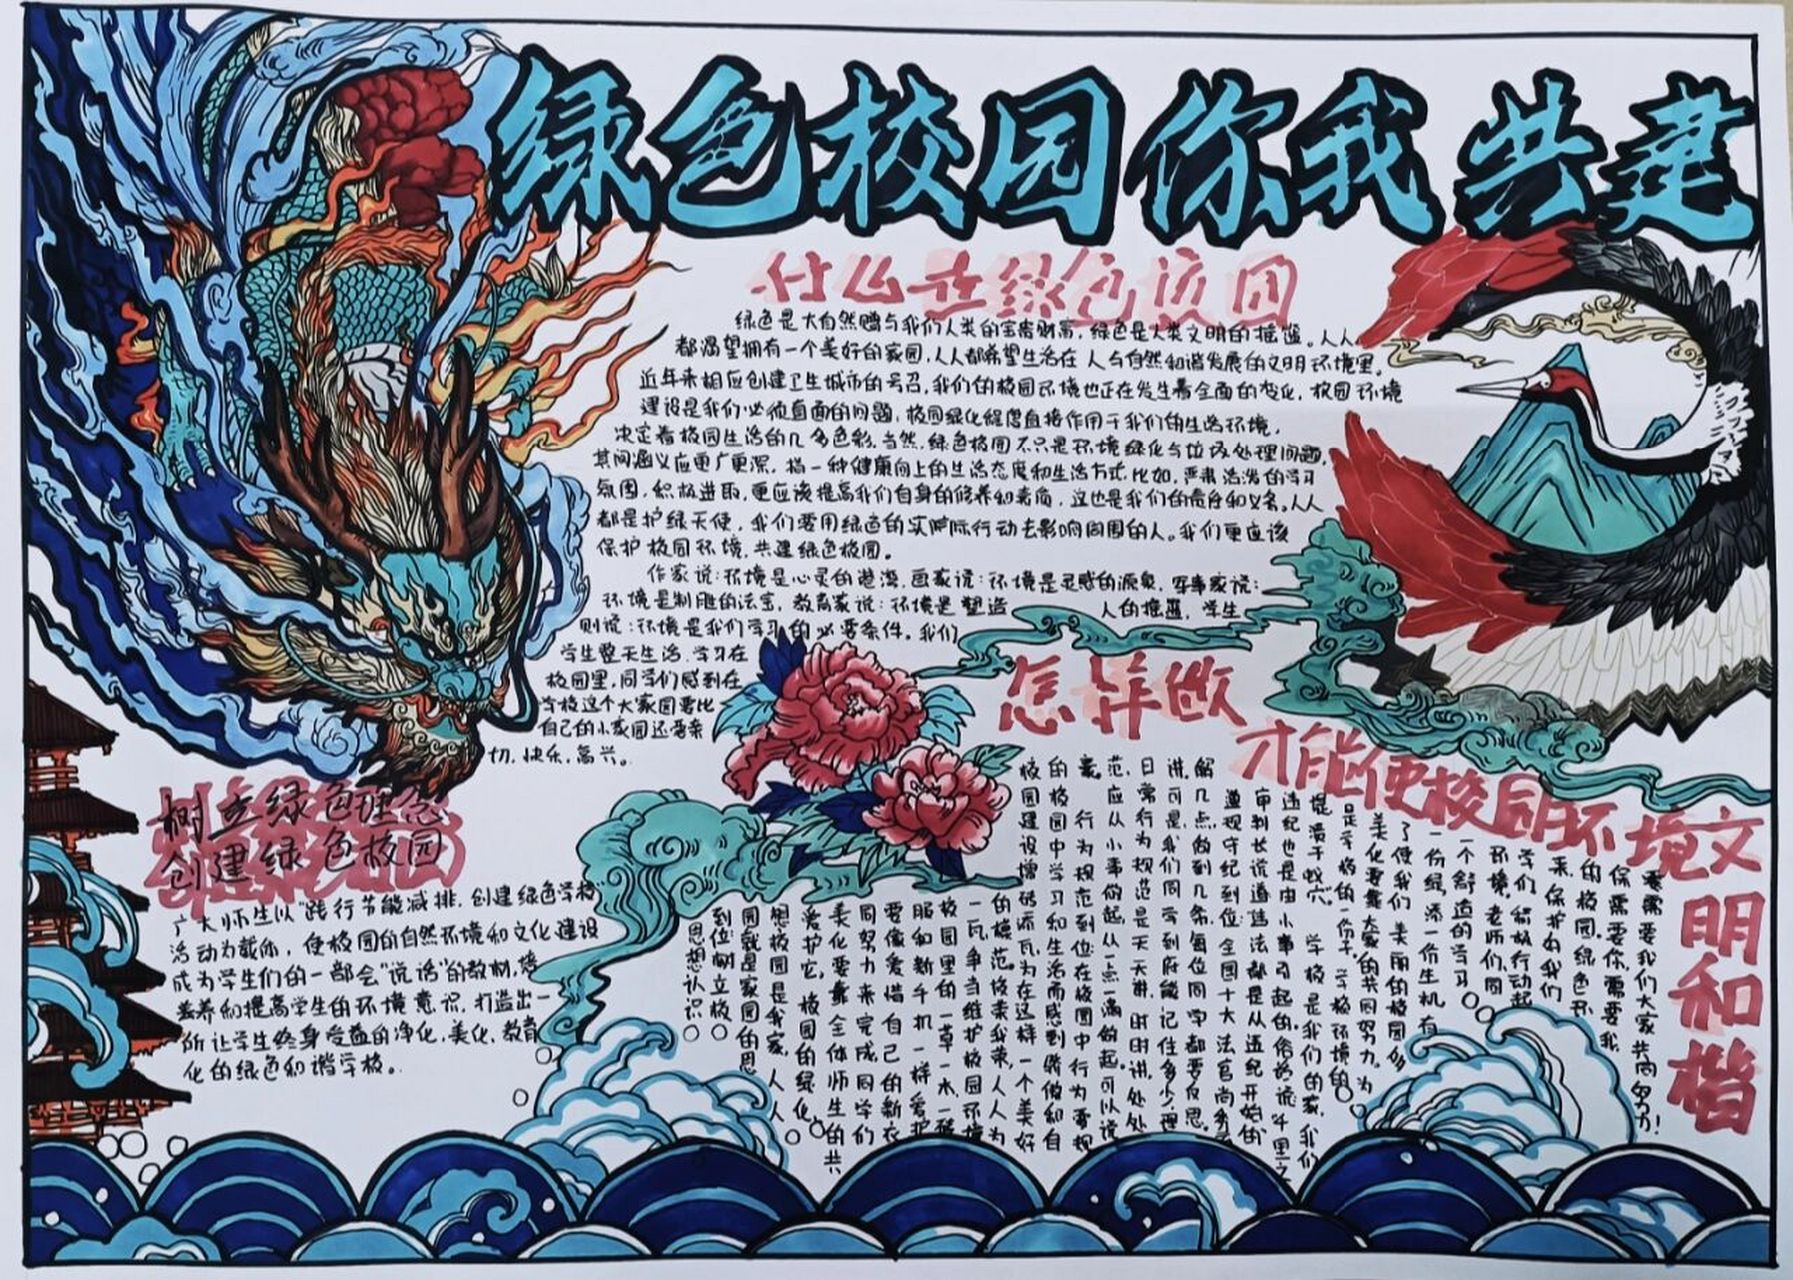 绿色校园你我共建
什么是绿色校园
绿色是大自然赠与我们人类的宝贵财富,绿色是人类文明的摇篮。人人
都渴望拥有一个美好的家园,人人都希望生活在人与自然和谐发展的文明环境里。
近年来相应创建卫生城市的号召,我们的校园环境也正在发生着全面的变化,校园环境
建设是我们必须直面的问题,校园绿化程度直接作用于我们的生活环境,
决定着校园生活的几多色彩,当然,绿色校园不只是环境绿化与垃圾处理问题,
其间涵义应更广更深,指一种健康向上的生活态度和生活方式,比如,严肃活泼的学习
氛围,积极进取,更应该提高我们自身的修养和素质,这也是我们的责任和义务。人人
都是护绿天使,我们要用绿色的实际行动去影响周围的人。我们更应该
保护校园环境,共建绿色校园。
作家说:环境是心灵的港湾,画家说:环境是灵感的源泉,军事家说:
环境是制胜的法宝,教育家说:环境是塑造人的摇篮,学生
则说:环境是我们学习的必要条件。我们
学生整天生活、学习在
校园里,同学们感到在
学校这个大家园要比
自己的小家园还要亲
切,快乐,高兴。
树立绿色理念
创建绿色校园
广大师生以“践行节能减排,创建绿色学校
活动为载体,使校园的自然环境和文化建设
成为学生们的一部会“说话”的教材,培
养养和提高学生的环境意识,打造出一
所让学生终身受益的净化,美化,教育
化的绿色和谐学校。
怎样做
才能使校园环境文
明和谐
需要我们大家共同努力!
保需要你,需要我,
的校园。绿色环
来保护的我们
学们积极行动起
环境,老师们,同
一个舒适的学习
一份绿,添一份生机,有
了使我们美丽的校园多
美化要靠大家的共同努力。为
是学校的一份子,学校环境的
堤溃于蚁穴。学校是我们的家,我们
违纪也是由小事引起的。俗话说:千里之
审判长说道违法都是从违纪开始的,
遵规守纪到位 全国十大法官尚秀
几点,做到几条,每位同学都要反思。
讲解可是,我们同学到底能记住多少理
日常行为规范是天天讲,时时讲,处处
范,应从小事做起,从一点一滴做起。可以说
行为规范到位在校园中行为要规
的校园中学习和生活而感到骄傲和自豪。
校园建设增砖添瓦,为在这样一个美好
的模范。校荣我荣,人人为
一瓦,争当维护校园环境
校园里的一草一木,一砖
服和新手机一样爱护
要像爱惜自己的新衣
同努力来完成,同学们
美化要靠全体师生的共
爱护它,校园的绿化、
想校园是我家,人人
园就是家园的思
到位,树立校
思想认识